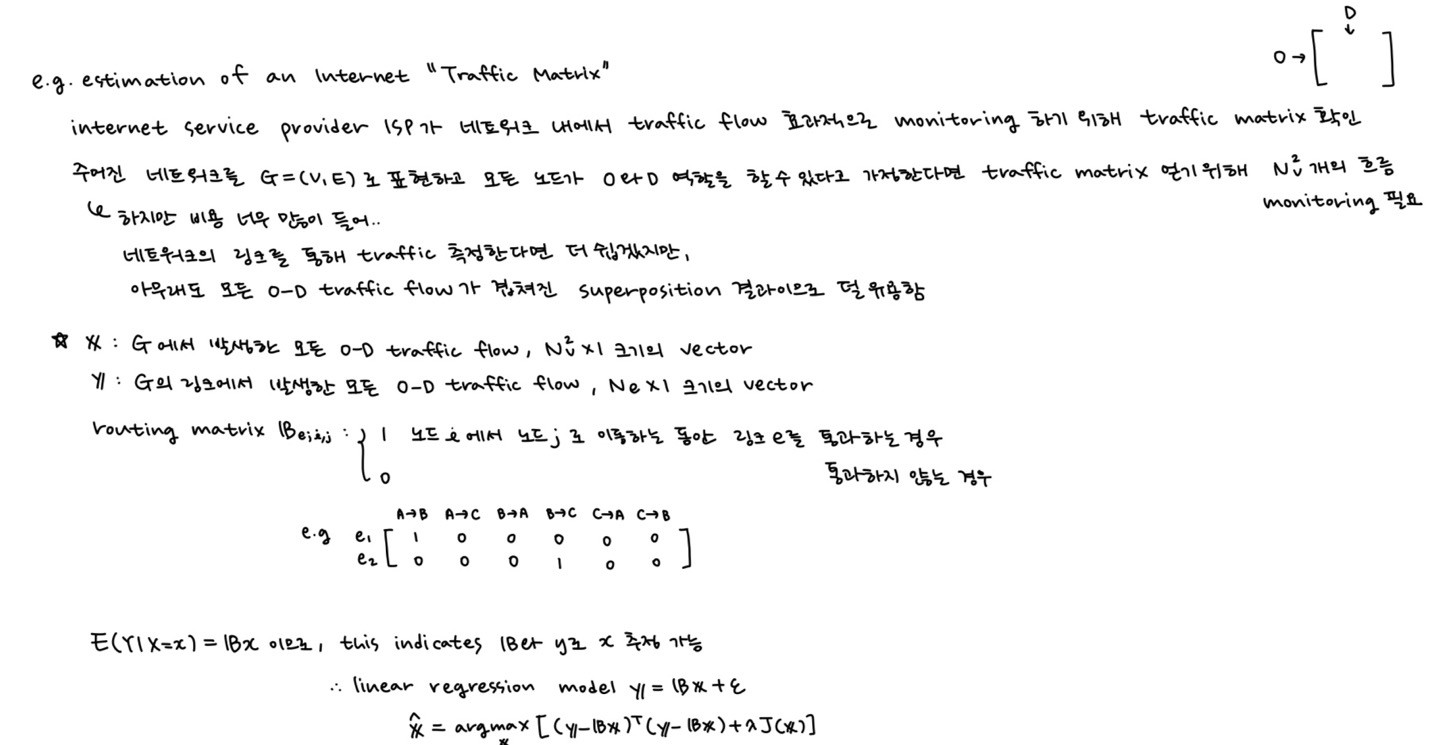 D
↓
O → [ ]
e.g. estimation of an Internet "Traffic Matrix"
internet service provider ISP가 네트워크 내에서 traffic flow 효과적으로 monitoring 하기 위해 traffic matrix 확인
주어진 네트워크를 G=(V,E)로 표현하고 모든 노드가 O와 D 역할을 할 수 있다고 가정한다면 traffic matrix 얻기 위해 Nᵥ² 개의 흐름
monitoring 필요
↳ 하지만 비용 너무 많이 들어..
네트워크의 링크를 통해 traffic 측정한다면 더 쉽겠지만,
아무래도 모든 O-D traffic flow가 겹쳐진 superposition 결과이므로 덜 유용함
☆ 𝕏 : G에서 발생한 모든 O-D traffic flow, Nᵥ²×1 크기의 vector
𝕐 : G의 링크에서 발생한 모든 O-D traffic flow, Ne×1 크기의 vector
routing matrix 𝔹e;i,j : { 1 노드 i에서 노드 j로 이동하는 동안 링크 e를 통과하는 경우
0 통과하지 않는 경우
A→B A→C B→A B→C C→A C→B
e.g e₁ [ 1 0 0 0 0 0 ]
e₂ [ 0 0 0 1 0 0 ]
E(Y|X=x) = 𝔹x 이므로, this indicates 𝔹와 y로 x 추정 가능
∴ linear regression model 𝕪 = 𝔹𝕩 + ε
𝕩̂ = argmax [(𝕪-𝔹𝕩)ᵀ(𝕪-𝔹𝕩)+λJ(𝕩)]
𝕩